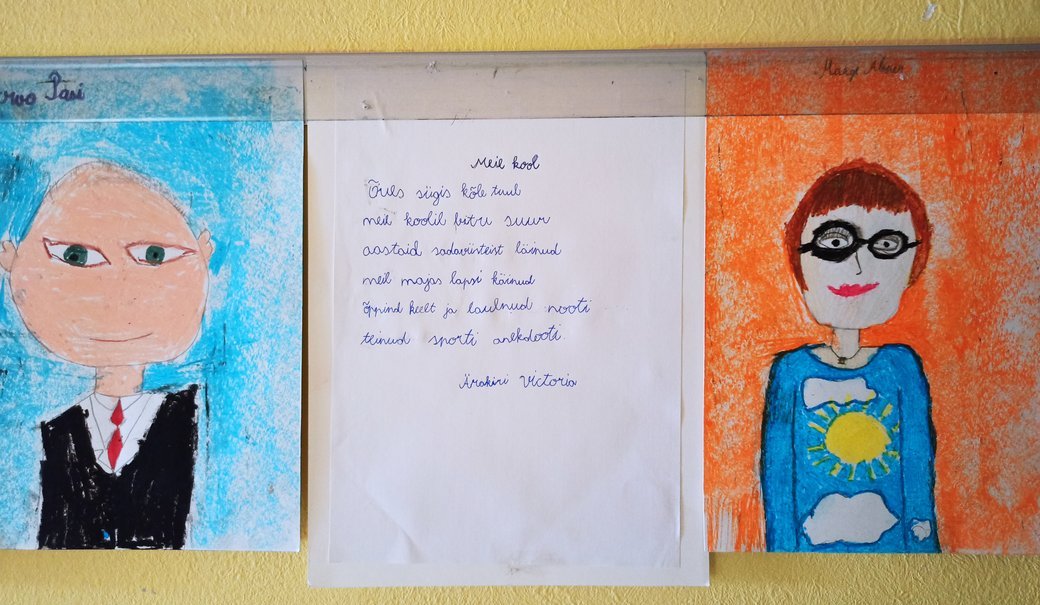 Pasi
Meie kool
Õues sügis kõle tuul
meil koolil pidu suur
aastaid sadaviisteist läinud
meil majas lapsi käinud
õppind keelt ja laulnud nooti
teinud sporti anekdooti.
Ärakiri Victoria